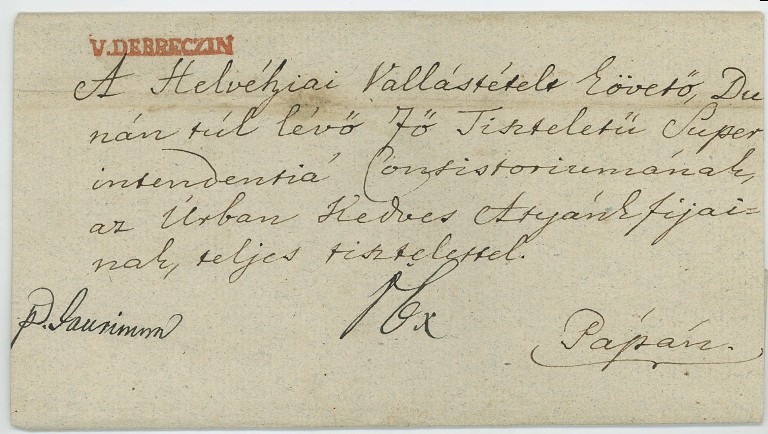 V. DEBRECZIN
A Helvétziai Vallástételt követő, Du
nán túl lévő Fő Tiszteletű Super
intendentiá Consistoriumának,
az Úrban Kedves Atyánkfijai=
nak, teljes tisztelettel.
p. Jaurinum
x
Pápán.